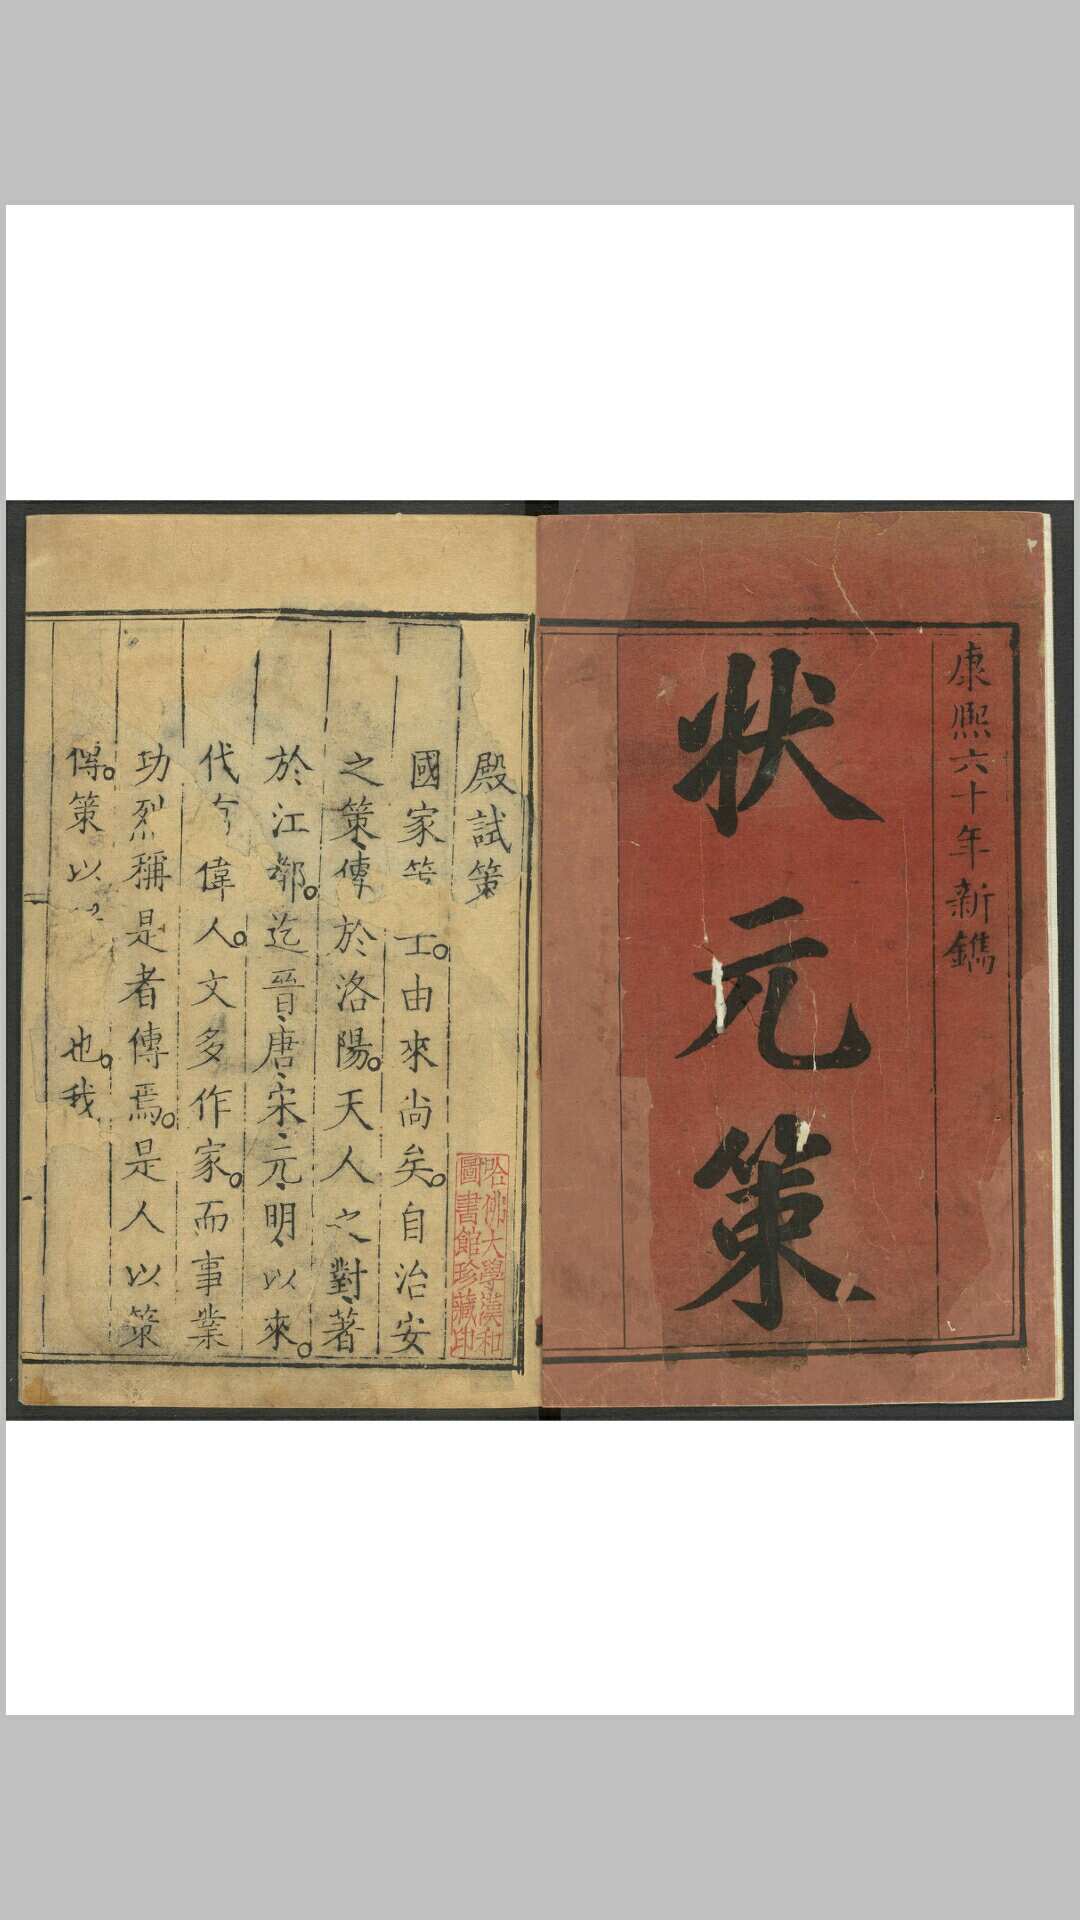 康熙六十年新鐫
狀元策
殿試策
國家 由來尚矣。自治安
之策、傳於洛陽。天人之對、著
於江都。迄晉、唐、宋、元、明、以來。
代 偉人。文多作家。而事業
功烈稱是者傳焉。是人以策
傳。策以 也。我
哈佛大學漢和
圖書館珍藏印